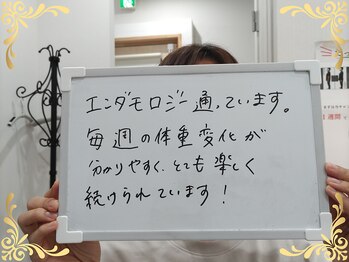 エンダモロジー通っています。
毎週の体重変化が
分かりやすく、とても楽しく
続けられています!
1週間